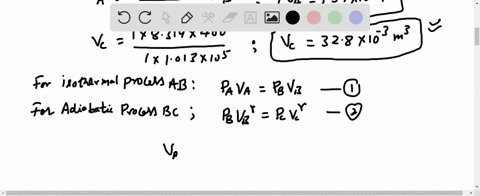 V_C = 1 x 8.314 x 400 / 1 x 1.013 x 10^5 ; V_C = 32.8 x 10^-3 m^3
For isothermal process AB : P_A V_A = P_B V_B — ①
For Adiabatic Process BC ; P_B V_B^r = P_C V_C^r — ②
V_P